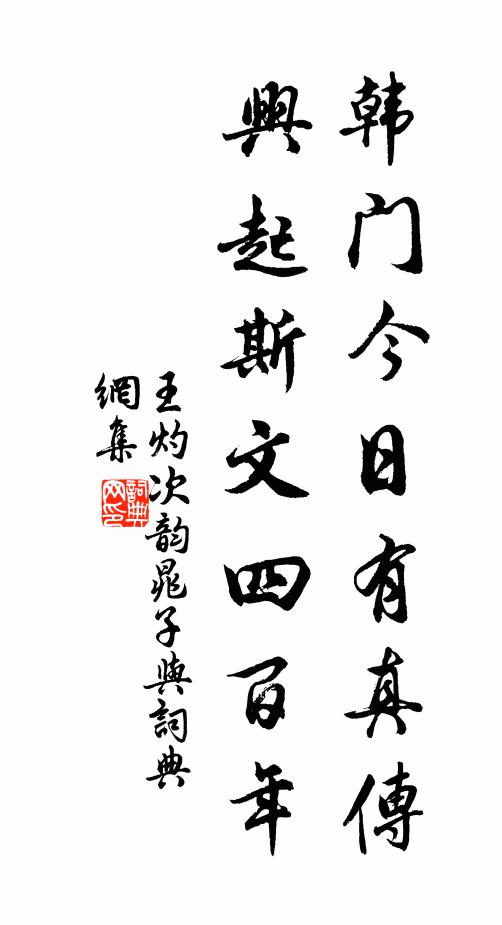 韩门今日有真傳
興起斯文四百年
王灼次韵晁子與詞典
網集
詞典网印